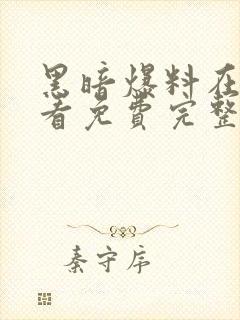 黑暗爆料在
看免费完整
秦守序